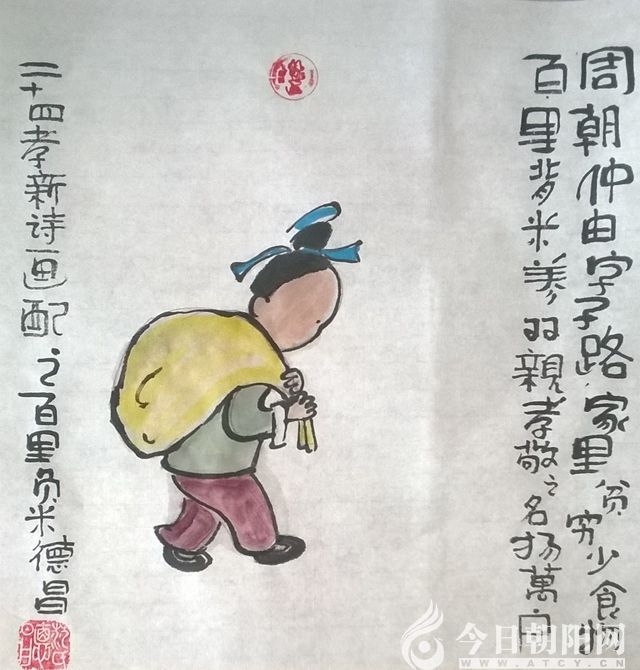 周朝仲由字子路家里贫穷少食物
百里背米养双親孝敬之名扬萬户
二十四孝新诗画配之百里负米德昌
今日朝阳网
WWW.ATCYC.CN